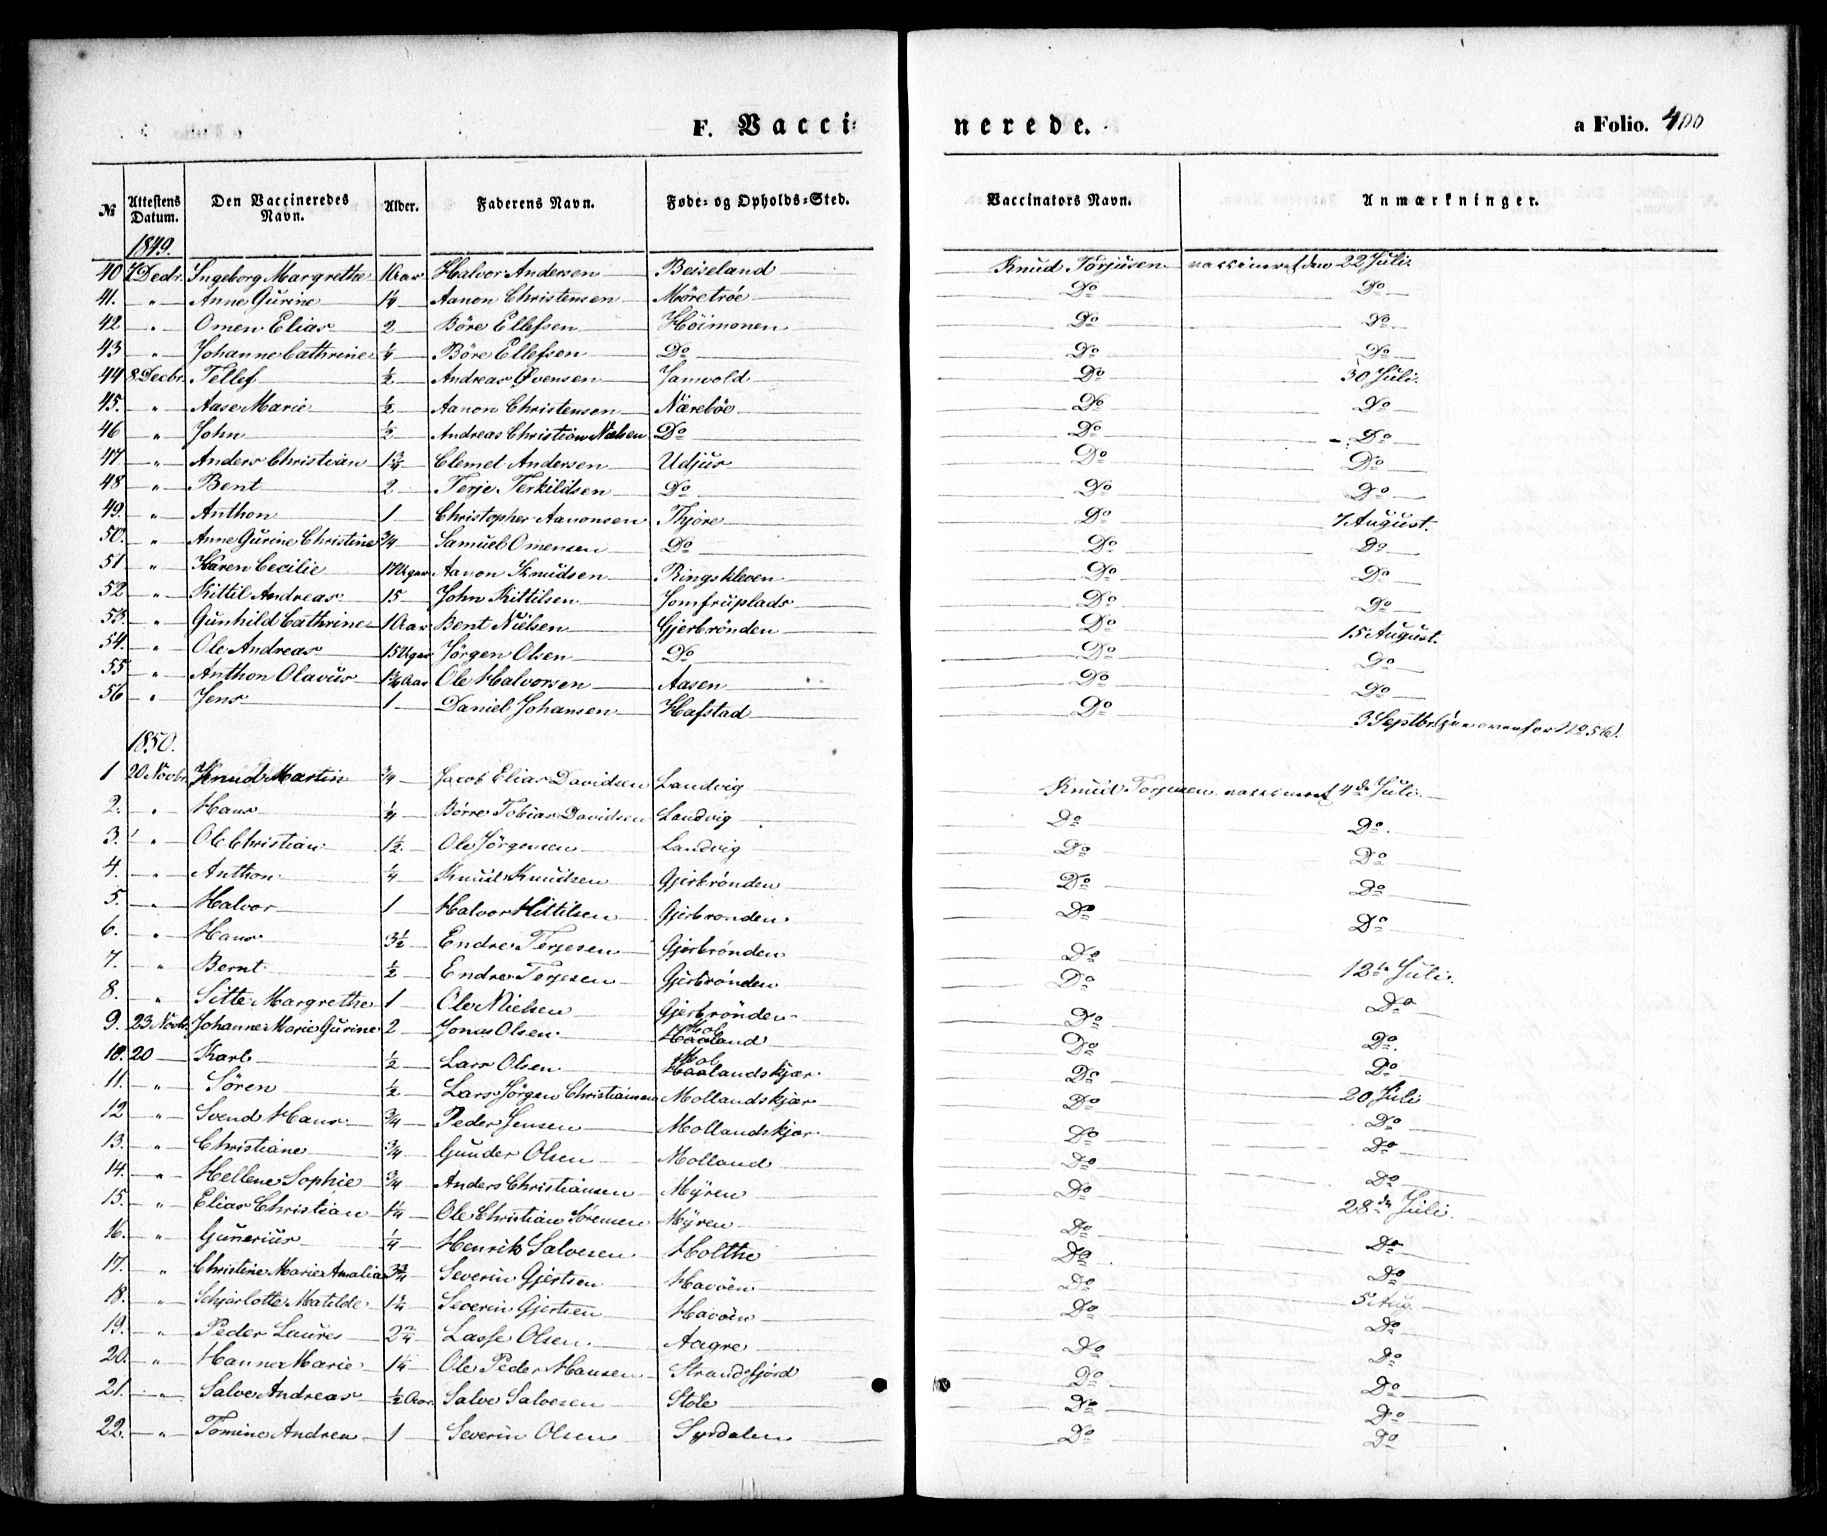 F. Vacci- nerede. a Folio. 400
№ Attestens Datum. Den Vaccineredes Navn. Alder. Faderens Navn. Føde- og Opholds-Sted. Vaccinators Navn. Anmærkninger.
1849.
40 7 Decbr. Ingeborg Margrethe 1 Aar Halvor Andersen Beiseland Knud Torjusen vaccineret den 22 Juli.
41. " Anne Gurine 1¼ Aanon Christensen Møretrøe Do Do
42 " Omen Elias 2 Böre Ellefsen Höimonen Do Do
43 " Johanne Cathrine ¼ Böre Ellefsen Do Do Do
44 8 Decbr. Tellef ½ Andreas Øvensen Jamvold Do 30 Juli.
45. " Aase Marie ½ Aanon Christensen Nærebøe Do Do
46 " John ½ Andreas Christian Nielsen Do Do Do
47 " Anders Christian 1¾ Clemet Andersen Udjur Do Do
48 " Bent 2 Terje Terkildsen Do Do Do
49. " Anthon 1 Christopher Aanonsen Thjore Do 7 August.
50. " Anne Gurine Christine ¾ Samuel Omensen Do Do Do
51 " Karen Cecilie 17 Uger Aanon Knudsen Ringskleven Do Do
52 " Kittil Andreas 15 John Kittilsen Jomfruplads Do Do
53. " Gunhild Cathrine 1 Aar Bent Nielsen Gjerbrönden Do 15 August.
54. " Ole Andreas 15 Uger Jörgen Olsen Do Do Do
55 " Anthon Olavus Aar Ole Halvorsen Aasen Do Do
56 " Jens 1 Daniel Johansen Hafstad Do 3 Septbr. ovenfor No 56).
1850.
1 20 Novbr. Knud Martin ¾ Jacob Elias Davidsen Landvig Knud Torjusen vaccineret 4de Juli.
2. " Hans ¼ Börre Tobias Davidsen Landvig Do Do.
3. " Ole Christian 1½ Ole Jörgensen Landvig Do Do
4. " Anthon ¼ Knud Knudsen Gjerbrönden Do Do
5. " Halvor 1 Halvor Kittilsen Gjerbrönden Do Do
6. " Hans 3½ Endre Terjesen Gjerbrönden Do 12te Juli.
7. " Bernt ½ Endre Terjesen Gjerbrönden Do Do
8. " Sitte Margrethe 1 Ole Nielsen Gjerbrönden Do Do.
9. 23 Novbr. Johanne Marie Gurine 2 Jonas Olsen Molland Do Do
10. 20 Karl ½ Lars Olsen Mollandskjær Do 20 Juli
11. " Sören ½ Lars Jörgen Christiansen Mollandskjær Do Do
12 " Svend Hans ¾ Peder Jensen Mollandskjær Do Do
13. " Christiane ¾ Gunder Olsen Molland Do Do
14. " Hellene Sophie ¾ Anders Christiansen Myren Do 28de Juli.
15. " Elias Christian 1¼ Ole Christian Sörensen Myren Do Do
16. " Gunerius ¼ Henrik Salvesen Holthe Do Do
17. " Christine Marie Amalia 3¾ Severin Gjertsen Havöen Do 5 Aug.
18. " Schjarlotte Matilde 1¼ Severin Gjertsen Havöen Do Do
19. " Peder Laures 2¾ Lasse Olsen Aagre Do Do
20. " Hanne Marie 1¼ Ole Peder Hansen Strandfjord Do Do
21. " Salve Andreas ½ Aar Salve Salvesen Stöle Do Do
22. " Tomine Andrea 1 Severin Olsen Syrdalen Do Do